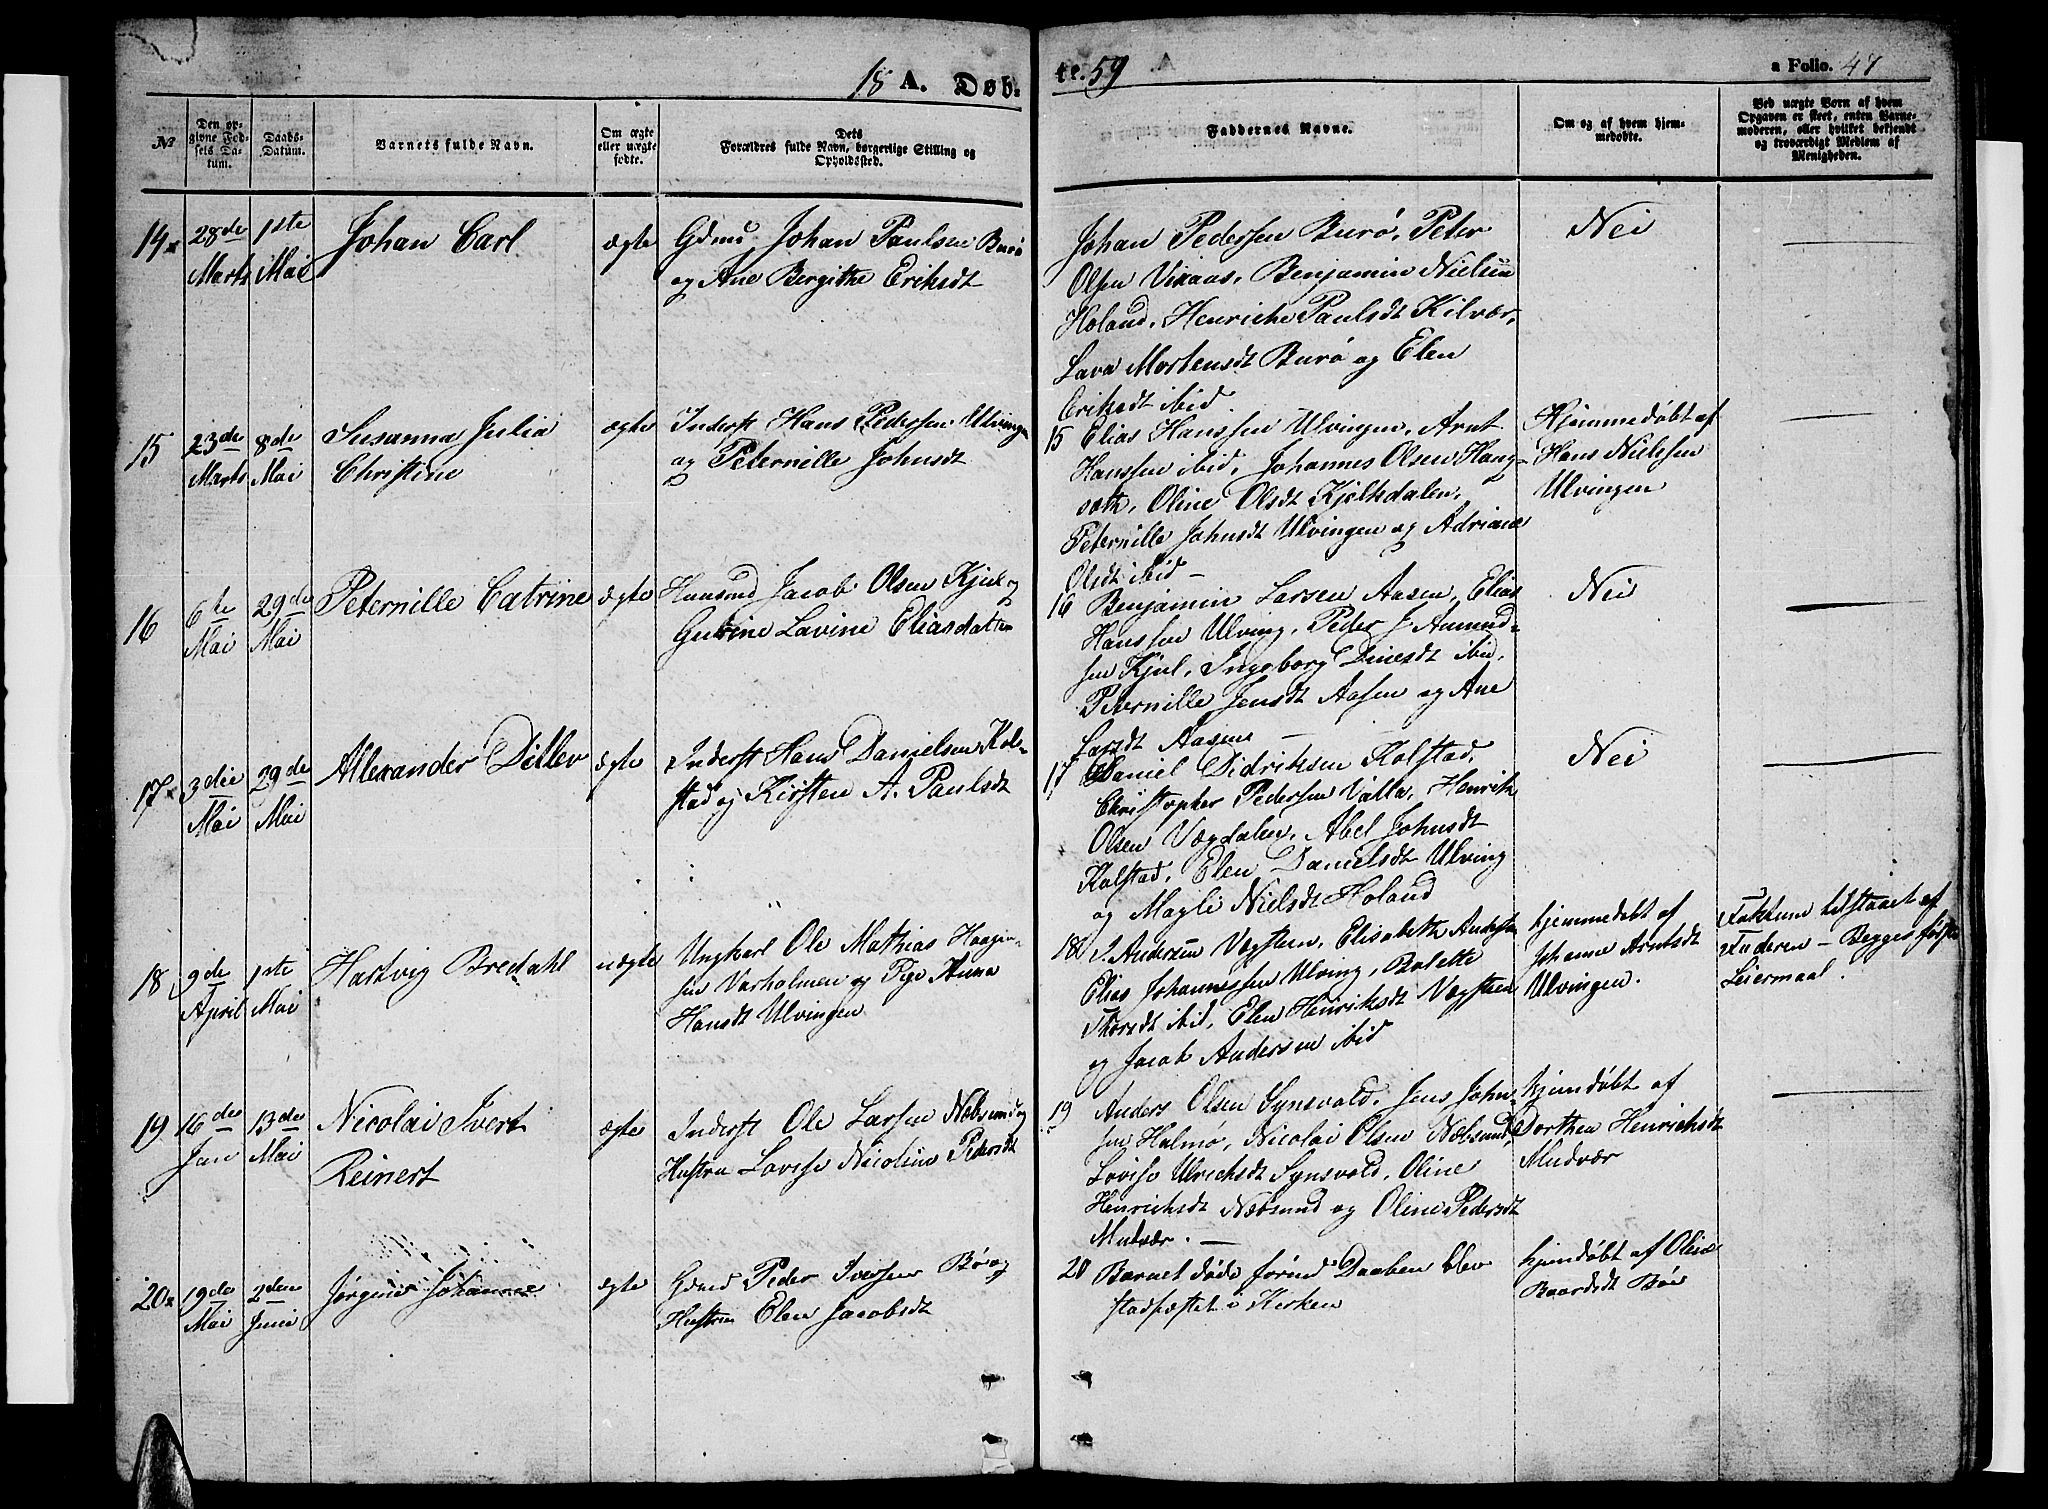 18 A. Døb-
te. 59
a Folio. 47
№
Den op-
givne Fød-
sels Da-
tum.
Daabs-
Datum.
Barnets fulde Navn.
Om ægte
eller uægte
fødte.
Dets
Forældres fulde Navn, borgerlige Stilling og
Opholdssted.
Faddernes Navne.
Om og af hvem hjem-
medøbte.
Ved uægte Børn af hvem
Opgaven er skeet, enten Barne-
moderen, eller hvilket bekjendt
og troværdigt Medlem af
Menigheden.
14
28de
Marts
1ste
Mai
Johan Carl
ægte
Gdmd Johan Paulsen Burø
og Ane Bergithe Eriksdt
Johan Pedersen Burø, Peter
Olsen Vixaas, Benjamin Nielsen
Holand, Henriche Paulsdt Kilvær,
Lava Mortensdt Burø og Elen
Eriksdt ibid
Nei
15
23de
Marts
8de
Mai
Susanna Julia
Christine
ægte
Inderst Hans Pedersen Ulvingen
og Peternille Johnsdt
15 Elias Hanssen Ulvingen, Arnt
Hanssen ibid, Johannes Olsen Haug-
søth, Oline Olsdt Kjelkdalen,
Peternille Johnsdt Ulvingen og Adriane
Olsdt ibid –
Hjemmedøbt af
Hans Nielssen
Ulvingen
16
6te
Mai
29de
Mai
Peternille Catrine
ægte
Huusmd Jacob Olsen Kjul og
Gurine Lavine Eliasdatter
16 Benjamin Larsen Aasen, Elias
Hanssen Ulving, Peder J Amund-
sen Kjul, Ingeborg Dinesdt ibid,
Peternille Jensdt Aasen og Ane
Larsdt Aasen –
Nei
17
3die
Mai
29de
Mai
Allexander Ditlev
ægte
Inderst Hans Danielsen Kol-
stad og Kirsten A. Paulsdt
17 Daniel Didriksen Kolstad,
Christopher Pedersen Valla, Henrik
Olsen Vægdalen, Abel Johnsdt
Kolstad, Elen Danielsdt Ulving
og Magli Nielsdt Holand
Nei
18
9de
April
1ste
Mai
Hartvig Bredahl
uægte
Ungkarl Ole Mathias Haagen-
sen Varholmen og Pige Anna
Hansdt Ulvingen
18 J. Andersen Vægsteen, Elisabeth Andersen
Elias Johannessen Ulving, Bolette
Thoresdt ibid, Elen Henriksdt Vægsteen
og Jacob Andersen ibid
hjemmedøbt af
Johanna Arntsdt
Ulvingen.
Faktum tilstaaet af
Faderen – Begges første
Leiermaal.
19
16de
Jan
13de
Mai
Nicolai Ivert
Reinert
ægte
Inderst Ole Larsen Næbsund og
Hustru Lovise Nicoline Pedersdt
19 Anders Olsen Synsvold, Jens John-
sen Halmø, Nicolai Olsen Næbsund,
Lovise Ulrichsdt Synsvold, Oline
Henrichsdt Næbsund og Oline Pedersdt
Mudvær. –
hjemdøbt af
Dorthea Henrichsdt
Mudvær
20
19de
Mai
2den
Juni
Jørgine Johanna
ægte
Gdmd Peder Iversen Bø og
Hustru Elen Jacobsdt
20 Barnet døde førend Daaben blev
stadfæstet i Kirken
hjemdøbt af Oline
Baardsdt Bøe